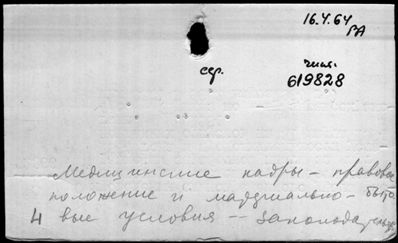 16.4.64
РА
сер.
619828
Медицинские кадры – правовое
положение и материально – быто
4 вые условия – – законодательс